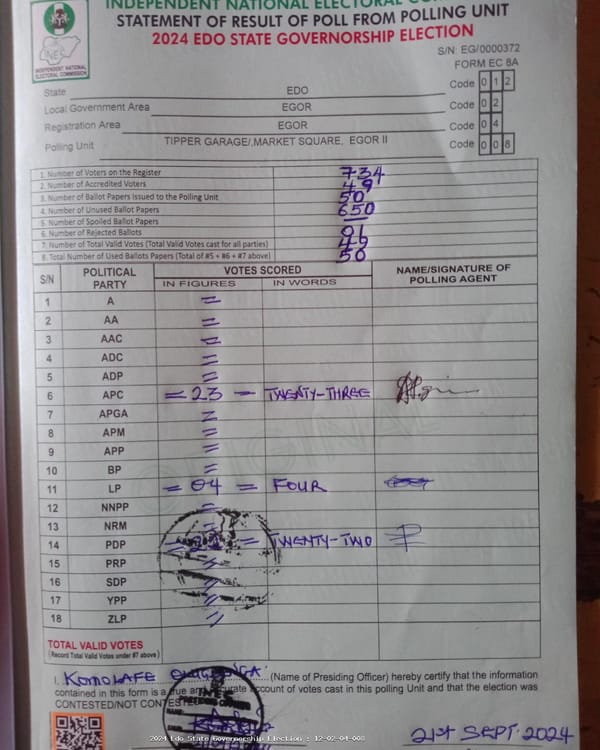 INDEPENDENT NATIONAL ELECTORAL COM
STATEMENT OF RESULT OF POLL FROM POLLING UNIT
2024 EDO STATE GOVERNORSHIP ELECTION
INEC
INDEPENDENT NATIONAL ELECTORAL COMMISSION
S/N: EG/0000372
FORM EC 8A
State EDO Code 0 1 2
Local Government Area EGOR Code 0 2
Registration Area EGOR Code 0 4
Polling Unit TIPPER GARAGE/,MARKET SQUARE, EGOR II Code 0 0 8
1. Number of Voters on the Register 734
2. Number of Accredited Voters 49
3. Number of Ballot Papers Issued to the Polling Unit 50
4. Number of Unused Ballot Papers 650
5. Number of Spoiled Ballot Papers —
6. Number of Rejected Ballots 01
7. Number of Total Valid Votes (Total Valid Votes cast for all parties) 49
8. Total Number of Used Ballots Papers (Total of #5 + #6 + #7 above) 50
S/N POLITICAL PARTY VOTES SCORED NAME/SIGNATURE OF POLLING AGENT
IN FIGURES IN WORDS
1 A =
2 AA =
3 AAC =
4 ADC =
5 ADP =
6 APC = 23 - TWENTY-THREE
7 APGA =
8 APM =
9 APP =
10 BP =
11 LP = 04 = FOUR
12 NNPP =
13 NRM =
14 PDP = 22 = TWENTY-TWO
15 PRP =
16 SDP =
17 YPP =
18 ZLP =
TOTAL VALID VOTES
(Record Total Valid Votes under #7 above)
I, KOMOLAFE (Name of Presiding Officer) hereby certify that the information
contained in this form is a true and accurate account of votes cast in this polling Unit and that the election was
CONTESTED/NOT CONTESTED
INEC
21ST SEPT. 2024
2024 Edo State Governorship Election : 12-02-04-008